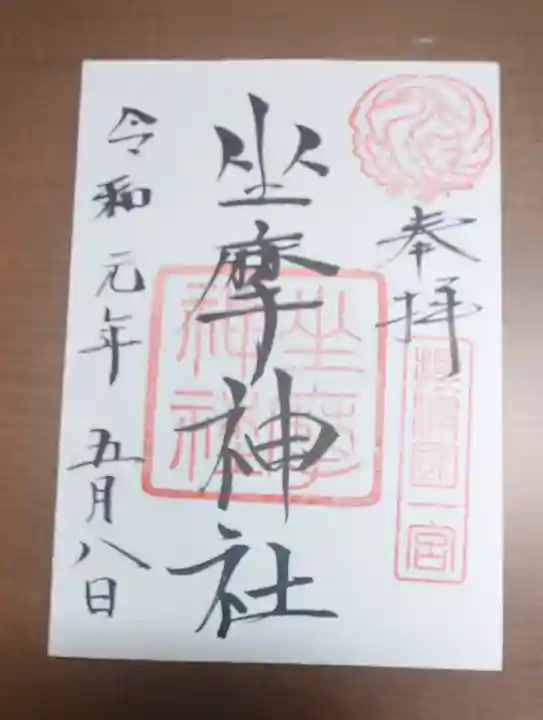 奉拝
摂津国一宮
坐摩神社
坐摩
神社
令和元年五月八日